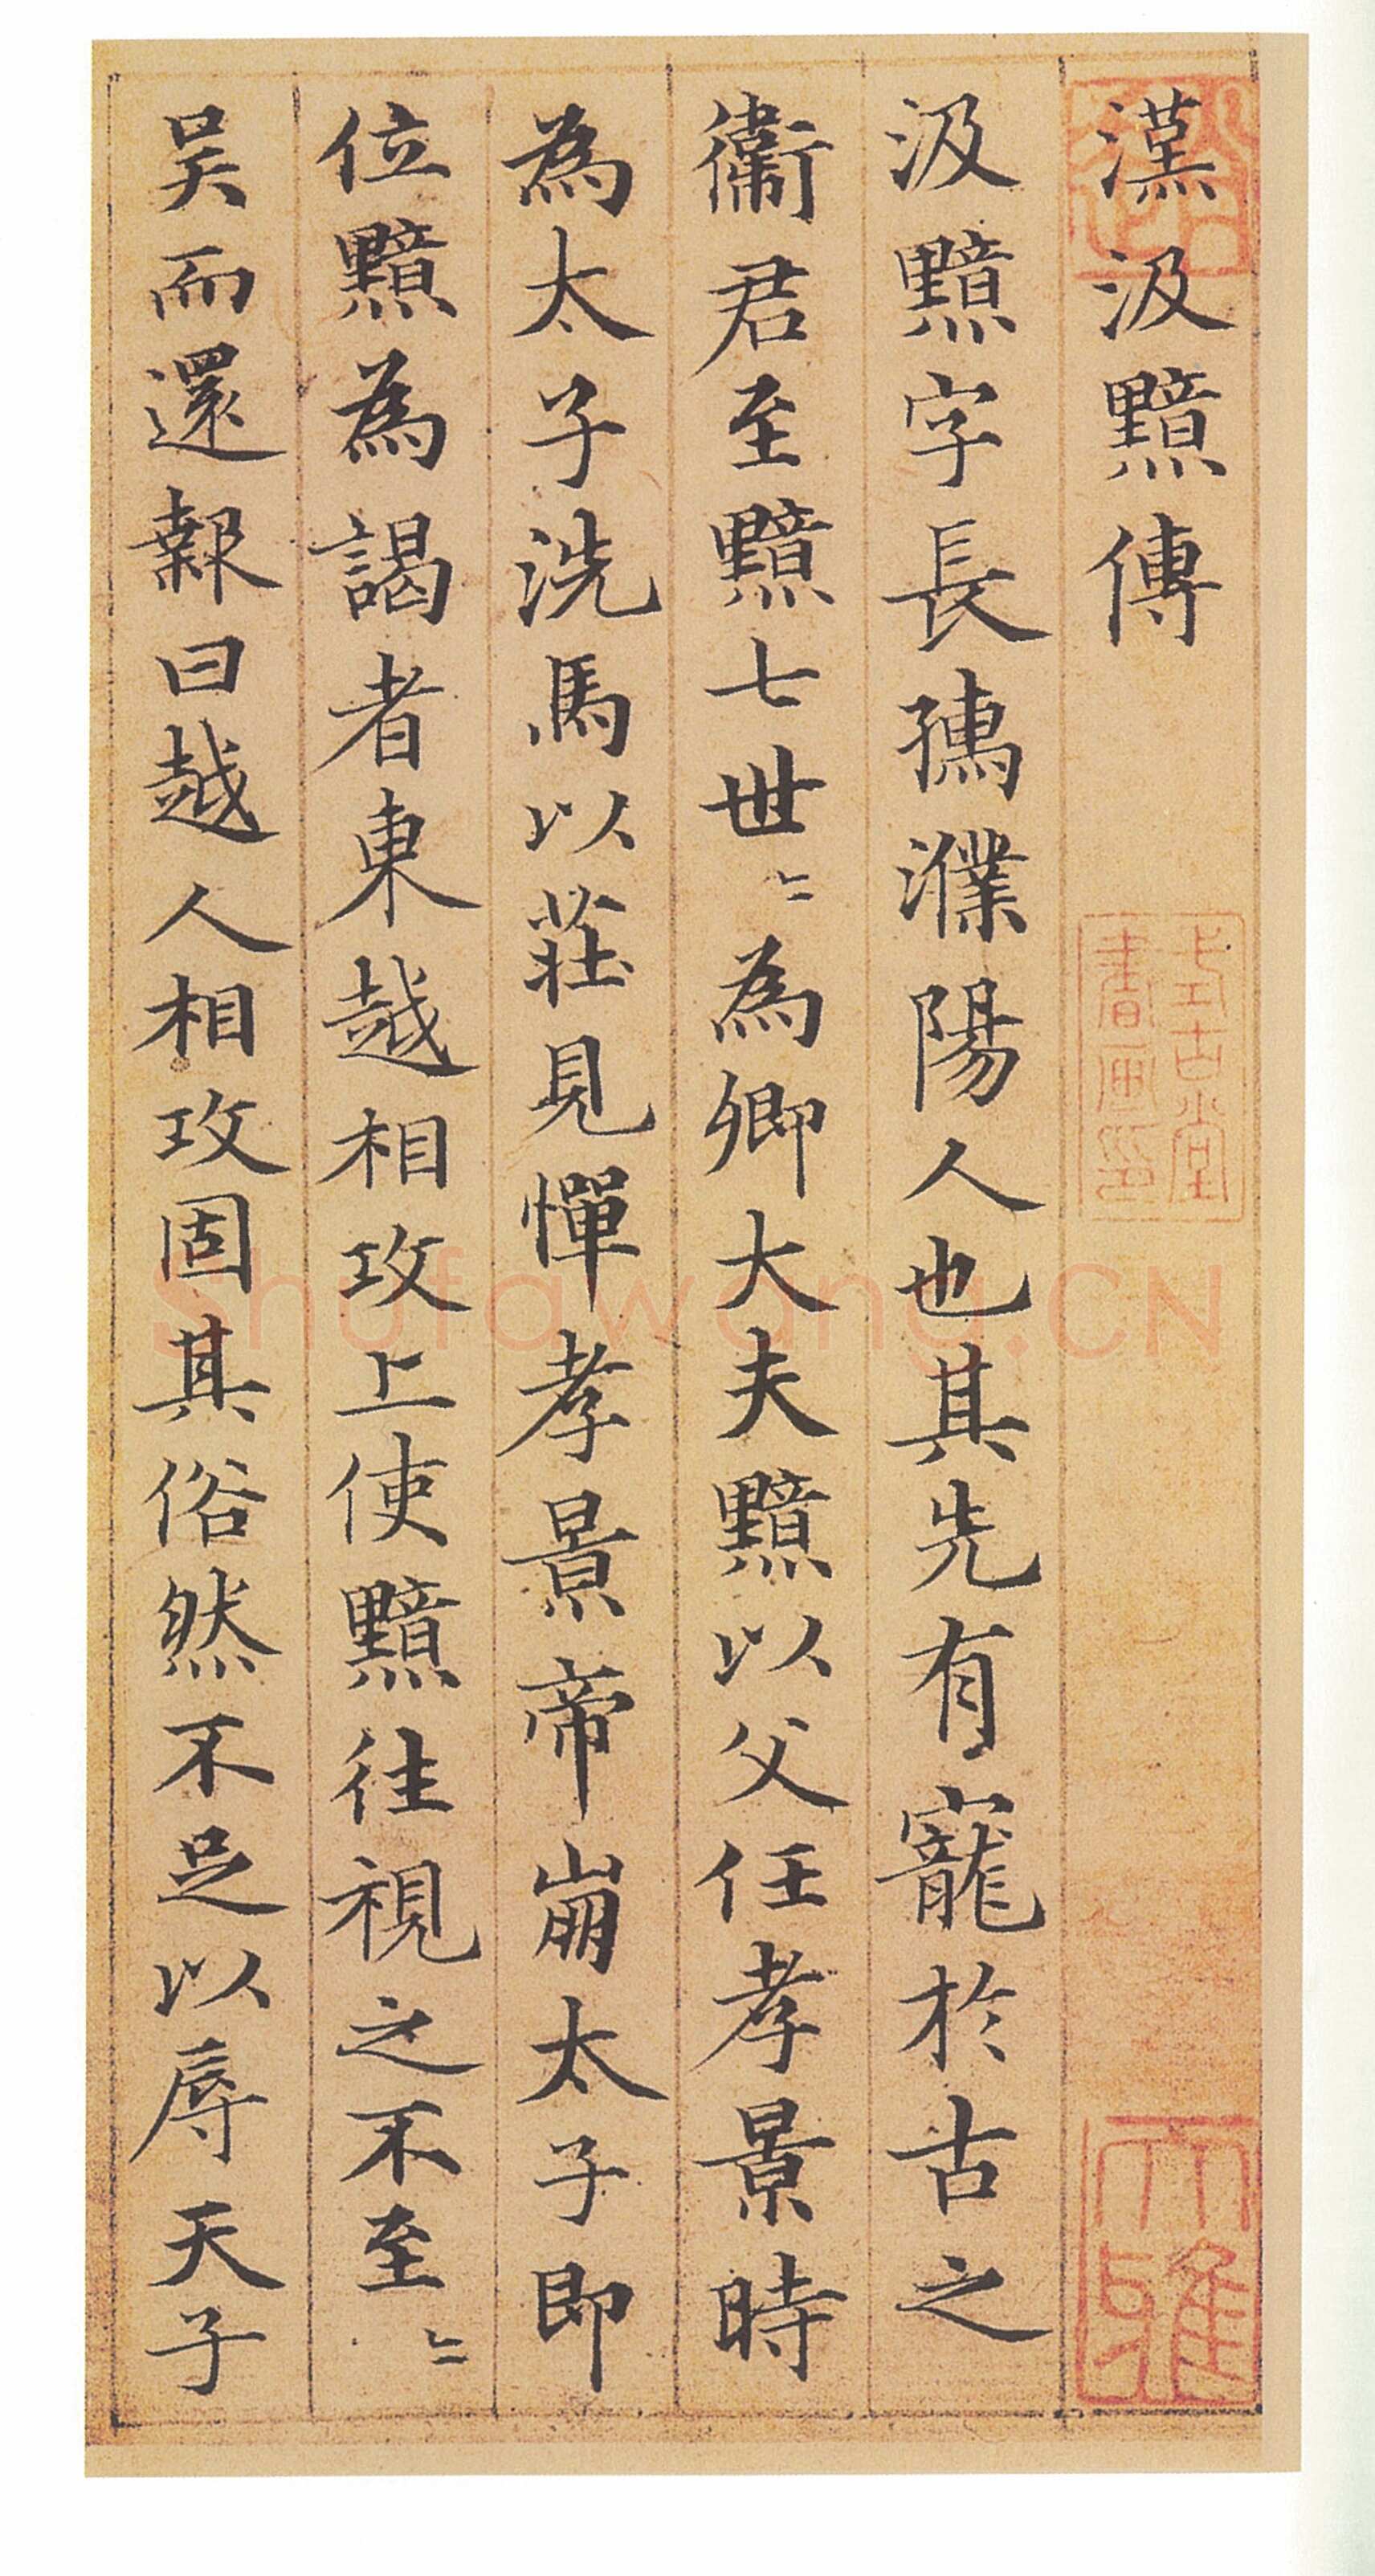 漢汲黯傳
汲黯字長孺濮陽人也其先有寵於古之
衛君至黯七世〻為卿大夫黯以父任孝景時
為太子洗馬以莊見憚孝景帝崩太子即
位黯為謁者東越相攻上使黯往視之不至〻
吳而還報曰越人相攻固其俗然不足以辱天子
式古堂書畫印
大雅
Shufawang.CN